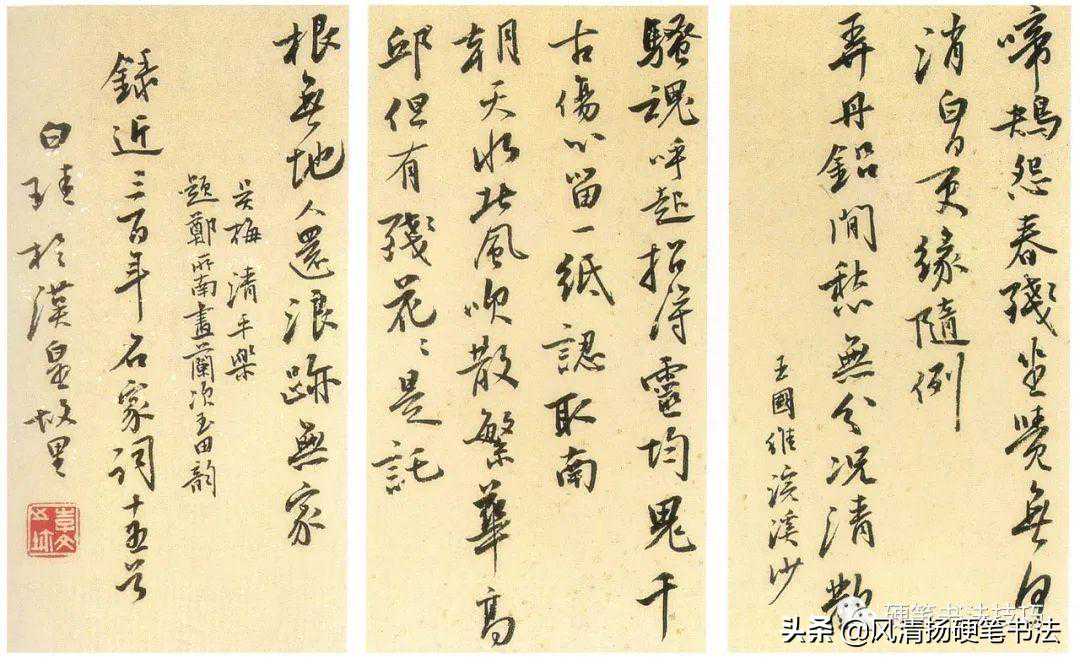 啼鴂怨春殘坐覺無何
消白日更緣隨例
弄丹鉛閒愁無分況清歡
王國維浣溪沙
騷魂呼起招得靈均鬼千
古傷心留一紙認取南
朝天水北風吹散繁華高
邱但有殘花〻是託
根無地人還浪跡無家
吳梅 清平樂
題鄭所南畫蘭次玉田韻
錄近三百年名家詞十五首
白 於漢皇故里
硬笔书法技巧
头条 @风清扬硬笔书法